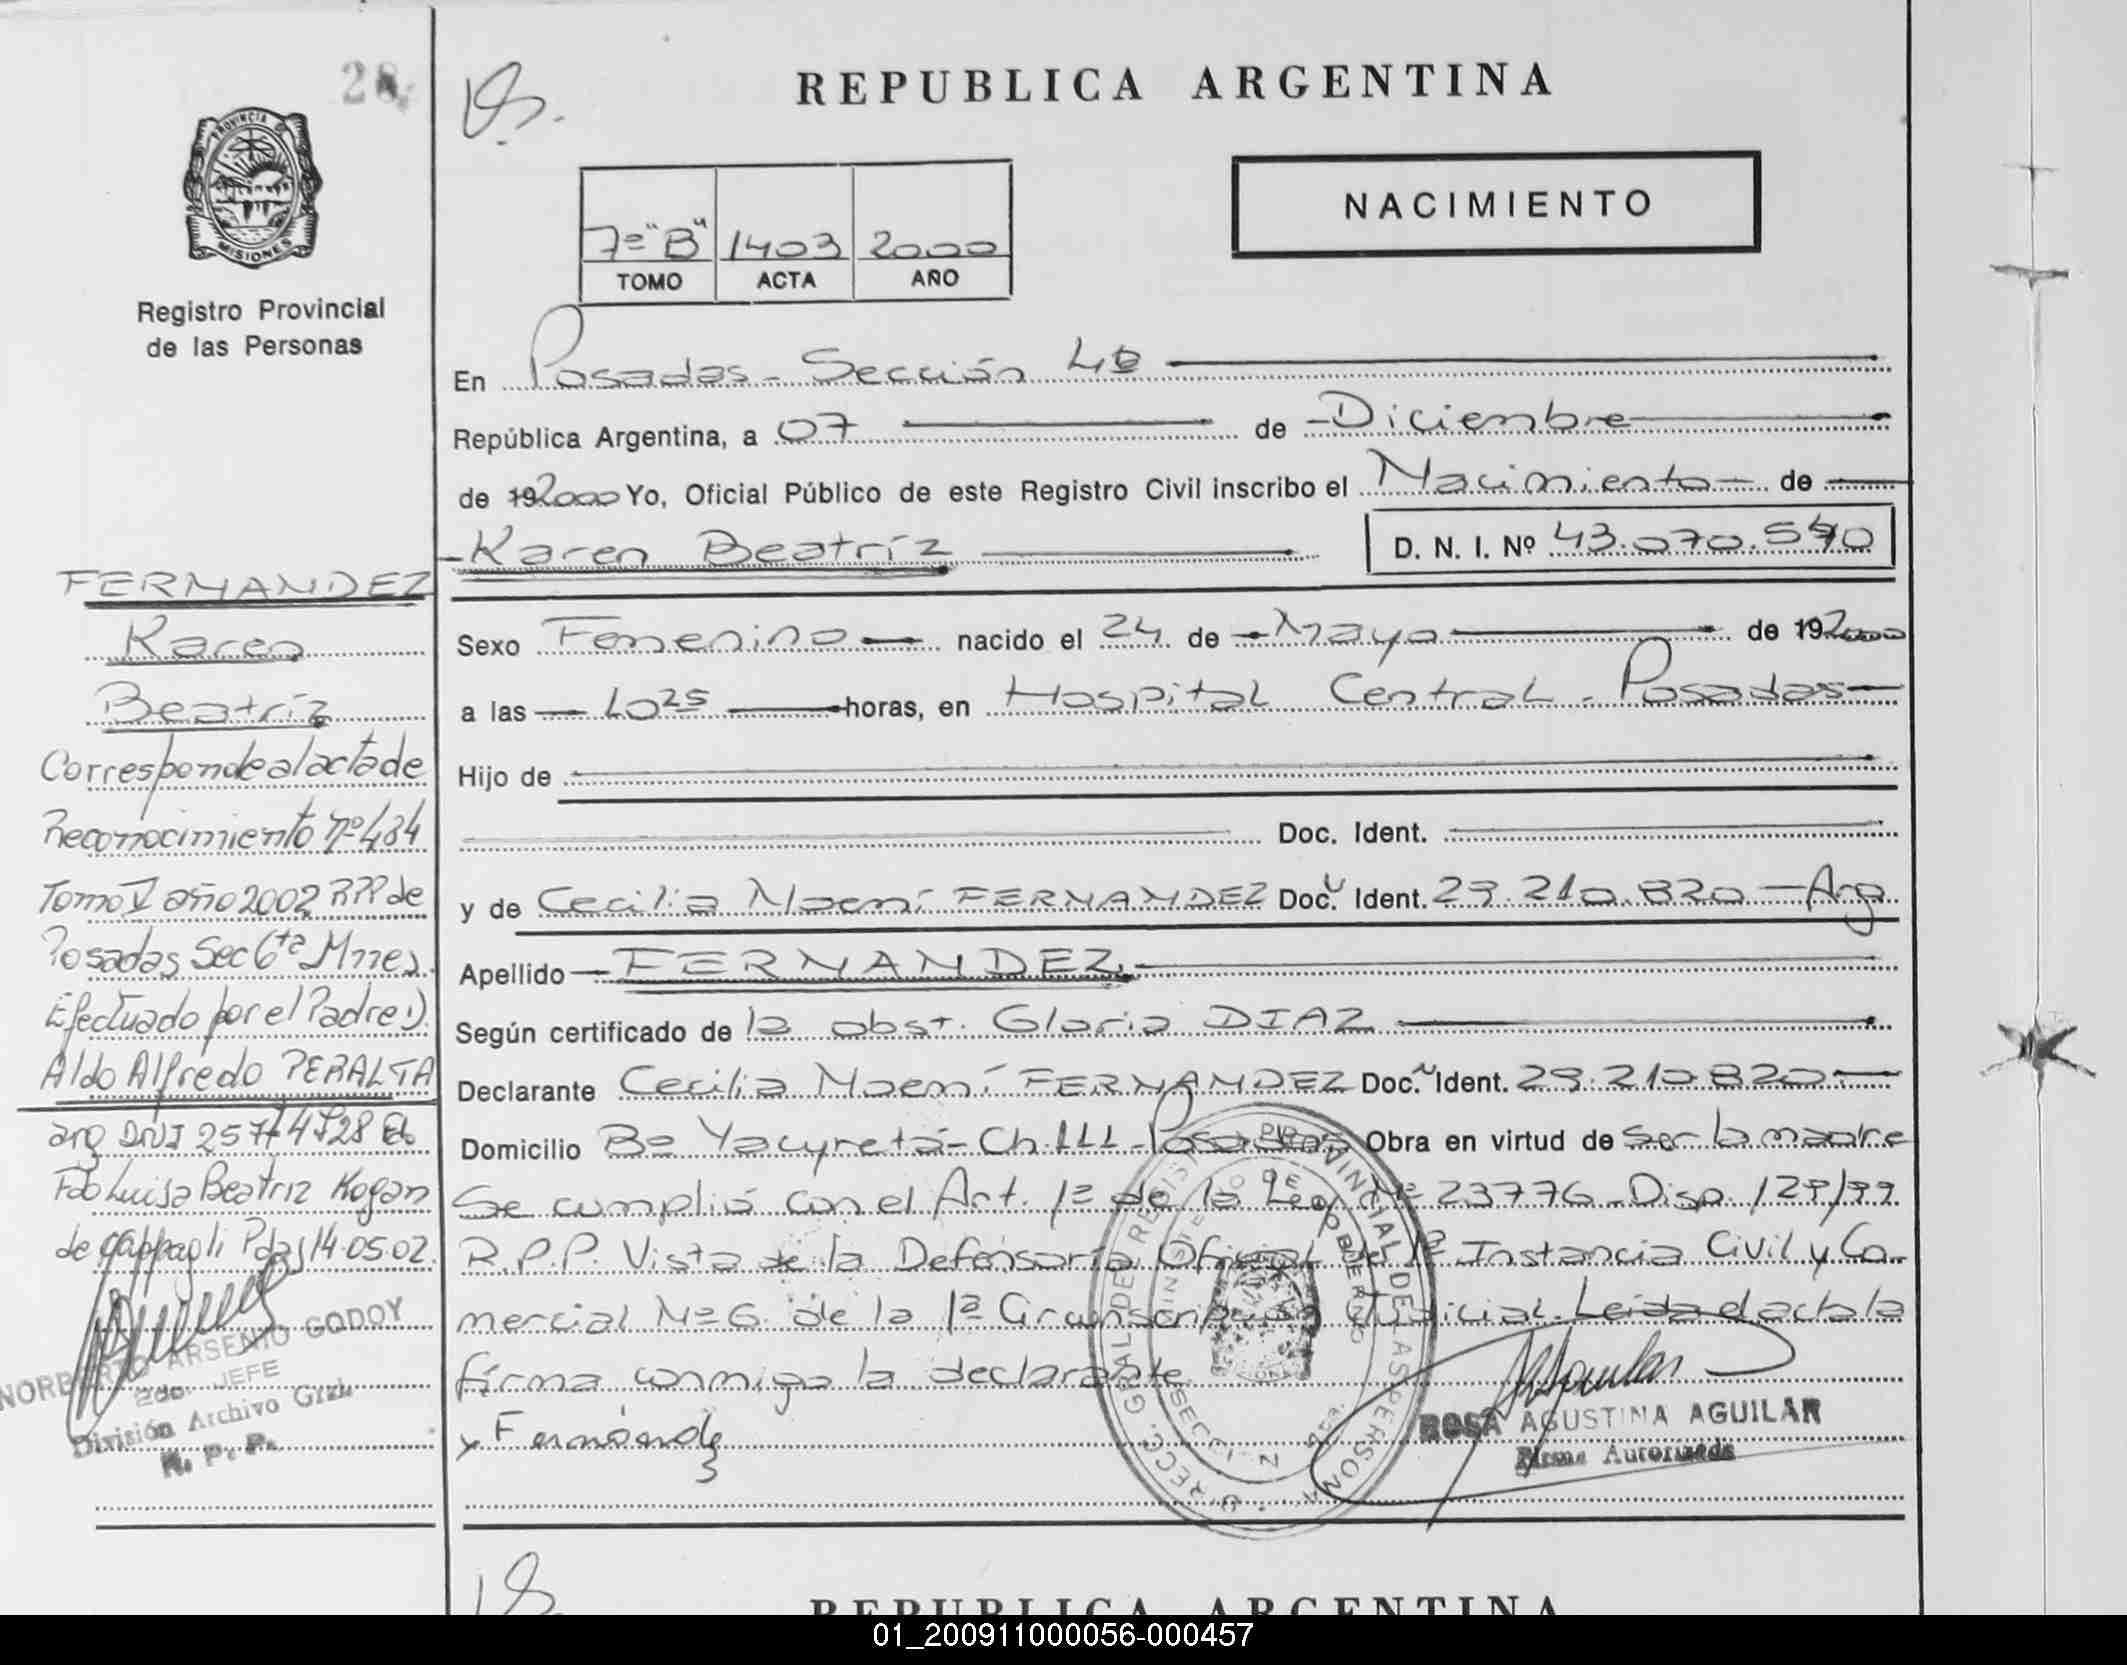 28
REPUBLICA ARGENTINA
PROVINCIA DE
MISIONES
Registro Provincial
de las Personas
7º "B" 1403 2000
TOMO ACTA AÑO
NACIMIENTO
En Posadas - Sección 4ª
República Argentina, a 07 de Diciembre
de 192000 Yo, Oficial Público de este Registro Civil inscribo el Nacimiento de
Karen Beatríz
D. N. I. Nº 43.070.570
Sexo Femenino nacido el 24 de Mayo de 192000
a las 10 25 horas, en Hospital Central - Posadas
Hijo de
Doc. Ident.
y de Cecilia Noemí FERNANDEZ Doc. Ident. 29.210.820 - Arg.
Apellido FERNANDEZ
Según certificado de la obst. Gloria DIAZ
Declarante Cecilia Noemí FERNANDEZ Doc. Ident. 29.210.820
Domicilio Bº Yacyretá - Ch.111 - Posadas Obra en virtud de ser la madre
Se cumplió con el Art. 1º de la Ley Nº 23776 - Disp. 129/99
R.P.P. Vista de la Defensoría Oficial de 1ª Instancia Civil y Co-
mercial Nº 6 de la 1ª Circunscripción Judicial. Leida el acta la
firma conmigo la declarante
Fernández
ROSA AGUSTINA AGUILAR
Firma Autorizada
FERNANDEZ
Karen
Beatríz
Corresponde al acta de
Reconocimiento Nº 484
Tomo V año 2002 RPP de
Posadas Sec 6ta Mnes.
Efectuado por el Padre:)
Aldo Alfredo PERALTA
arg DNI
Fdo Luisa Beatriz Kogan
de Pdas 14.05.02.
NORBERTO ARSENIO GODOY
2do. JEFE
División Archivo Gral.
R. P. P.
REPUBLICA ARGENTINA
01_200911000056-000457